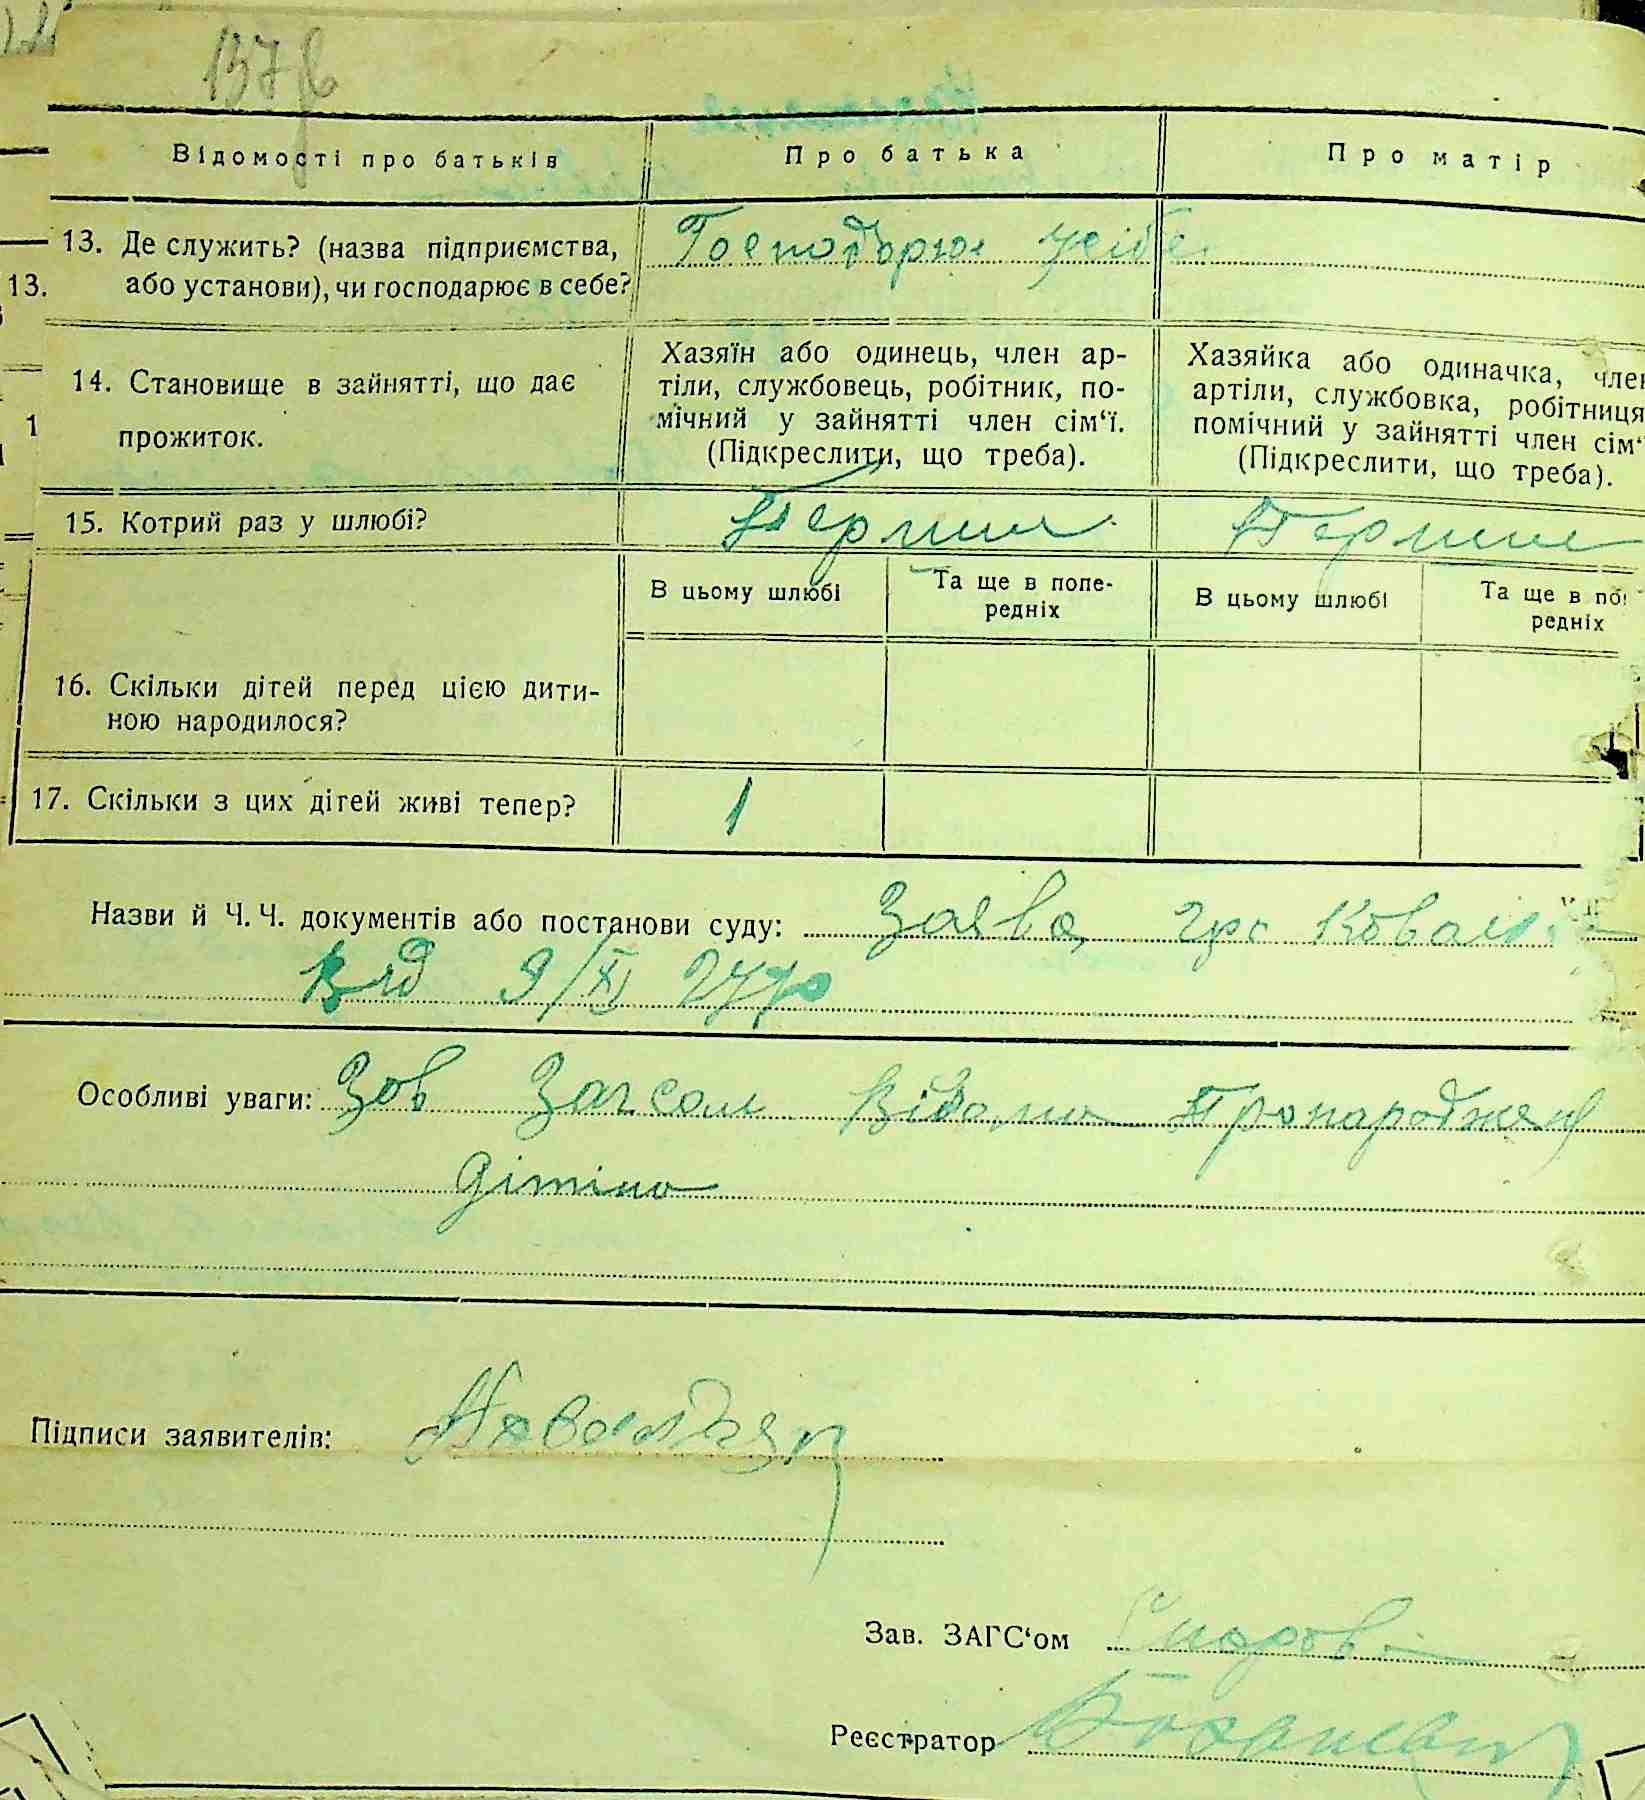 137
Відомості про батьків
Про батька
Про матір
13. Де служить? (назва підприємства,
або установи), чи господарює в себе?
Господарює усібе
13.
14. Становище в зайнятті, що дає
прожиток.
Хазяїн або одинець, член ар-
тіли, службовець, робітник, по-
мічний у зайнятті член сім‘ї.
(Підкреслити, що треба).
Хазяйка або одиначка, член
артіли, службовка, робітниця
помічний у зайнятті член сім‘
(Підкреслити, що треба).
1
15. Котрий раз у шлюбі?
Перший
Перший
В цьому шлюбі
Та ще в попе-
редніх
В цьому шлюбі
Та ще в по
редніх
16. Скільки дітей перед цією дити-
ною народилося?
17. Скільки з цих дітей живі тепер?
1
Назви й Ч. Ч. документів або постанови суду: Заява гр
від 9/XI 27 р
Особливі уваги: Зав Загсом Видано
дітіно
Підписи заявителів:
Зав. ЗАГС‘ом
Реєстратор